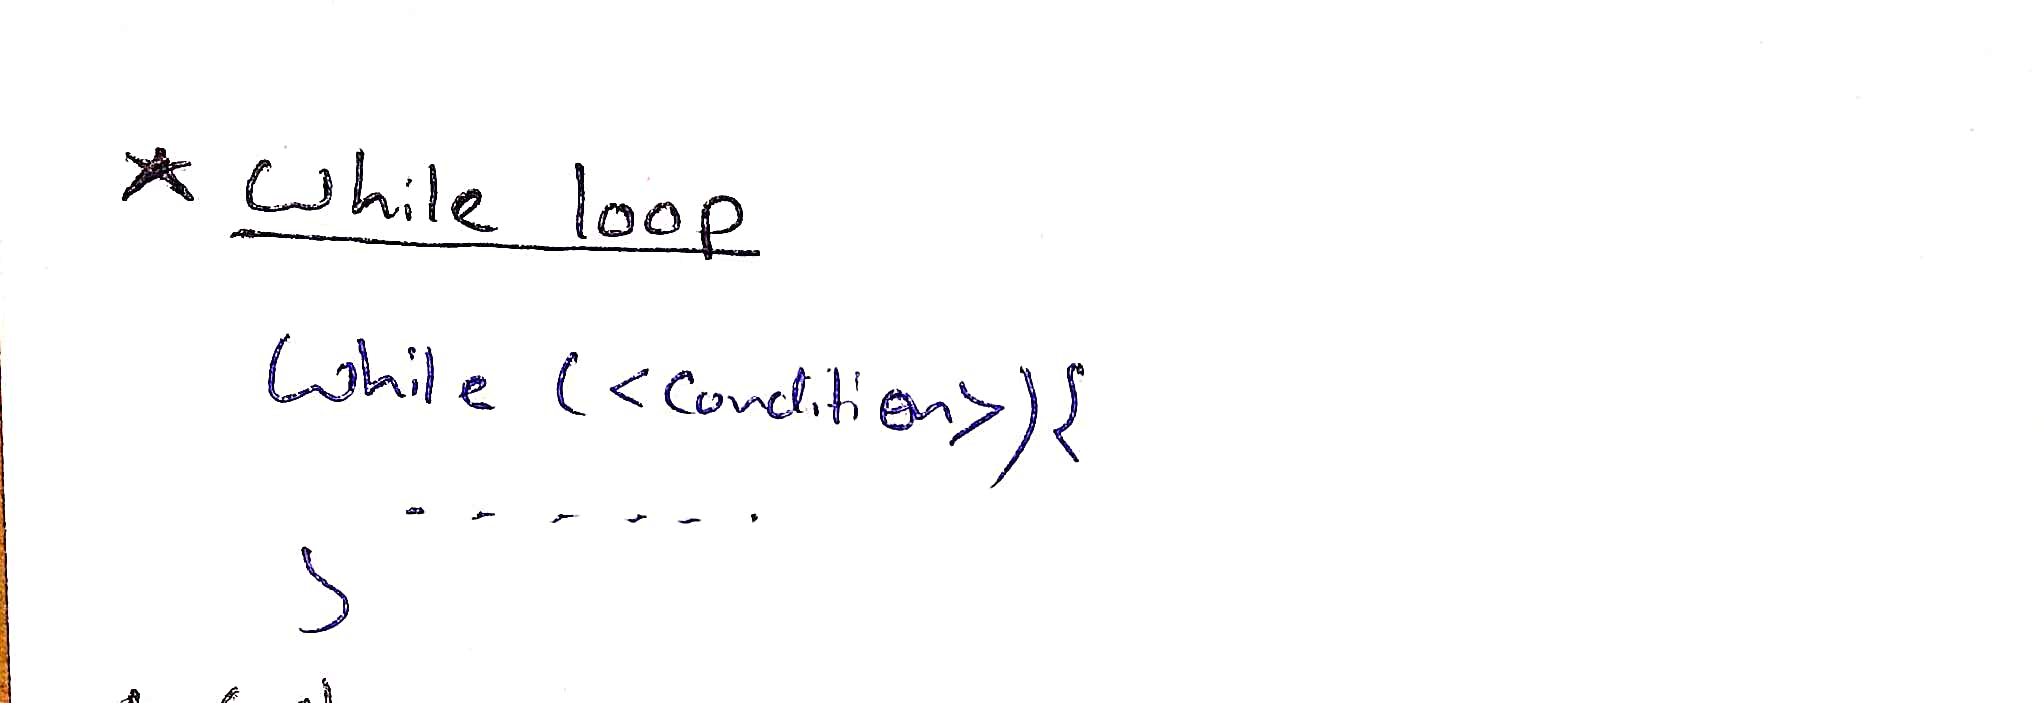 * While loop
While (<Condition>){
- - - - - .
}